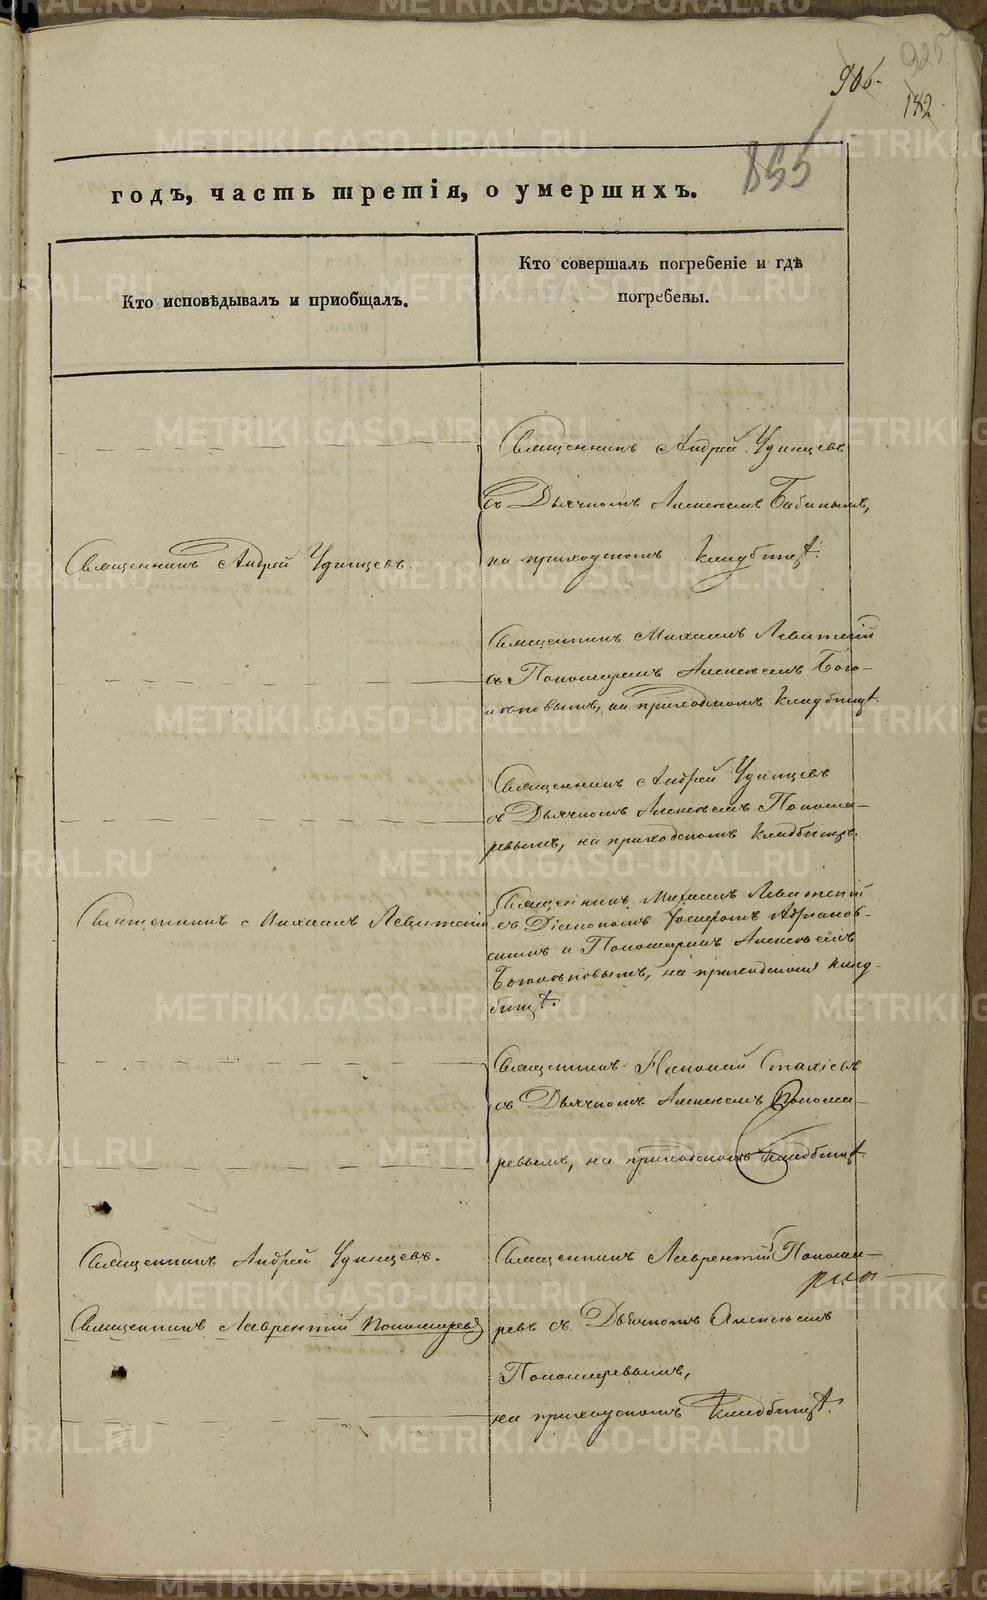 906.
925
182
855
годъ, часть третія, о умершихъ.
Кто исповѣдывалъ и пріобщалъ.
Кто совершалъ погребеніе и гдѣ
погребены.
Священникъ Андрей Удинцевъ
съ Дьячкомъ Алексѣемъ Бабинымъ,
на приходскомъ кладбищѣ.
Священникъ Андрей Удинцевъ.
Священникъ Михаилъ Левитскій
съ Пономаремъ Алексѣемъ Бого-
лѣповымъ, на приходскомъ кладбищѣ.
Священникъ Андрей Удинцевъ
съ Дьячкомъ Алексѣемъ Понома-
ревымъ, на приходскомъ кладбищѣ.
Священникъ Михаилъ Левитскій.
Священникъ Михаилъ Левитскій
съ Діакономъ
и Пономаремъ Алексѣемъ
Боголѣповымъ, на приходскомъ клад-
бищѣ.
Священникъ
съ Дьячкомъ Алексѣемъ Понома-
ревымъ, на приходскомъ кладбищѣ
Священникъ Андрей Удинцевъ.
Священникъ Лаврентій Понома-
Священникъ Лаврентій Пономаревъ
ревъ съ Дьячкомъ Алексѣемъ
Пономаревымъ,
на приходскомъ кладбищѣ.
METRIKI.GASO-URAL.RU